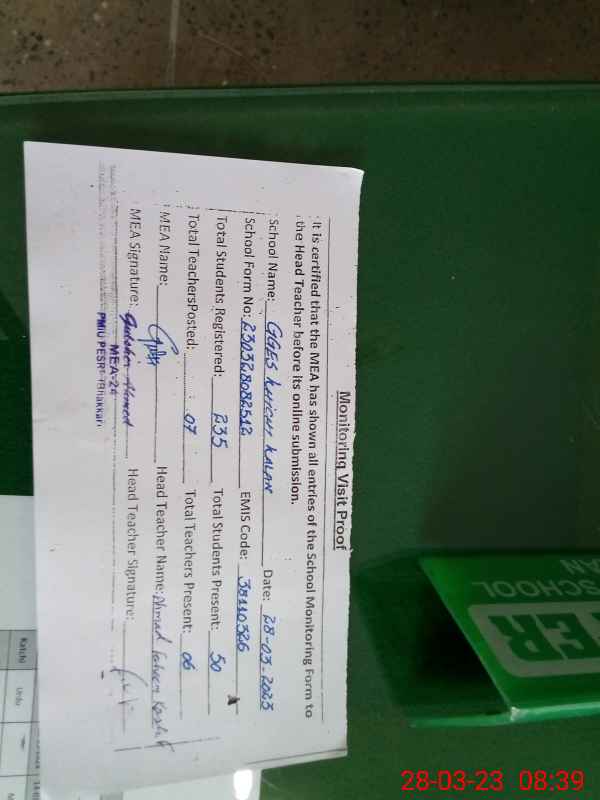 Monitoring Visit Proof
It is certified that the MEA has shown all entries of the School Monitoring Form to
the Head Teacher before its online submission.
School Name: GGES KHICHI KALAN Date: 28-03-2023
School Form No: 230328082512 EMIS Code: 38110326
Total Students Registered: 235 Total Students Present: 50
Total TeachersPosted: 07 Total Teachers Present: 06
MEA Name: Head Teacher Name: Ahmad
MEA Signature: Gulsher Ahmed Head Teacher Signature:
MEA-24
PMIU PESRP Bhakkar
SCHOOL
TER
Katchi
Urdu
28-03-23 08:39